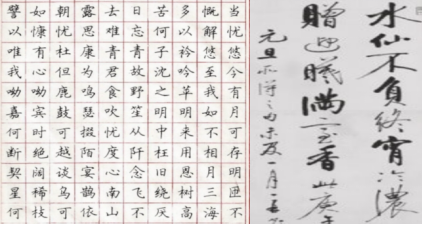 譬如朝露去日苦多慨当
以慷忧思难忘何以解忧
唯有杜康青青子衿悠悠
我心但为君故沈吟至今
呦呦鹿鸣食野之苹我有
嘉宾鼓瑟吹笙明明如月
何时可掇忧从中来不可
断绝越陌度阡枉用相存
契阔谈宴心念旧恩月明
星稀乌鹊南飞绕树三匝
何枝可依山不厌高海不
水仙不负终宵冷浓
赠迎曦满室香
元旦